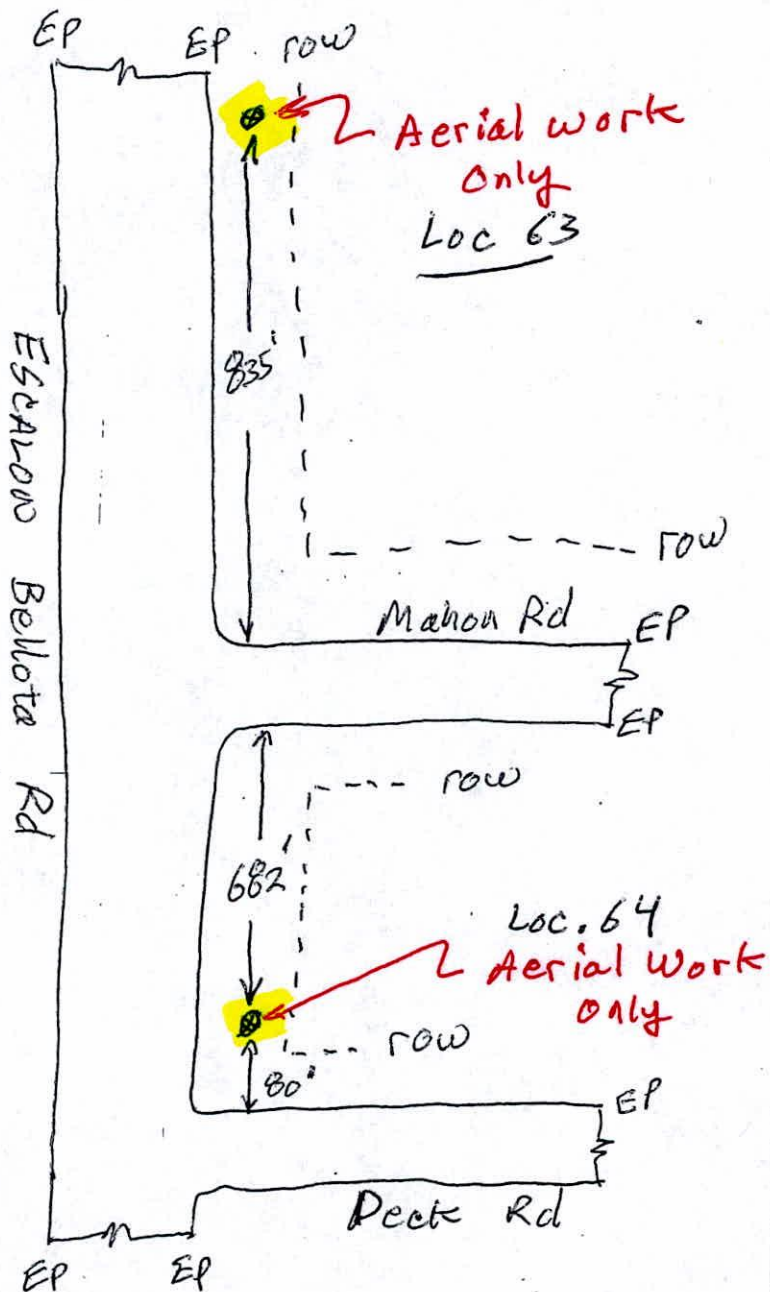 EP EP row
Aerial work
Only
Loc 63
835'
ESCALON Bellota Rd
row
Mahon Rd EP
EP
row
682'
Loc. 64
Aerial Work
Only
row
80'
EP
Peck Rd
EP EP